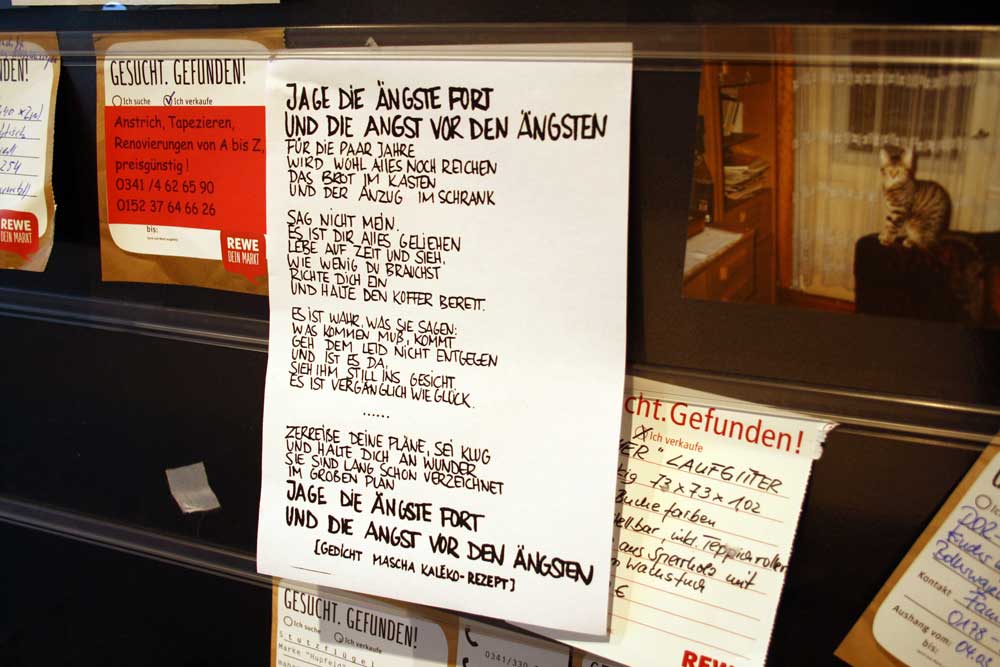 GESUCHT. GEFUNDEN!
Ich suche Ich verkaufe
Anstrich, Tapezieren,
Renovierungen von A bis Z,
preisgünstig !
0341 /4 62 65 90
0152 37 64 66 26
bis:
REWE
DEIN MARKT
DEN!
254
REWE
DEIN MARKT
JAGE DIE ÄNGSTE FORT
UND DIE ANGST VOR DEN ÄNGSTEN
FÜR DIE PAAR JAHRE
WIRD WOHL ALLES NOCH REICHEN
DAS BROT IM KASTEN
UND DER ANZUG IM SCHRANK
SAG NICHT MEIN.
ES IST DIR ALLES GELIEHEN
LEBE AUF ZEIT UND SIEH,
WIE WENIG DU BRAUCHST
RICHTE DICH EIN
UND HALTE DEN KOFFER BEREIT.
ES IST WAHR, WAS SIE SAGEN:
WAS KOMMEN MUß, KOMMT
GEH DEM LEID NICHT ENTGEGEN
UND IST ES DA,
SIEH IHM STILL INS GESICHT.
ES IST VERGÄNGLICH WIE GLÜCK.
......
ZERREIßE DEINE PLÄNE, SEI KLUG
UND HALTE DICH AN WUNDER
SIE SIND LANG SCHON VERZEICHNET
IM GROßEN PLAN
JAGE DIE ÄNGSTE FORT
UND DIE ANGST VOR DEN ÄNGSTEN
[GEDICHT MASCHA KALÉKO-REZEPT]
cht.Gefunden!
Ich verkaufe
ER" LAUFGITTER
tig 73x73x102
Buche farben
llbar, inkl Teppichroller
aus Sperrholz mit
Wachstuch
€
REWE
GESUCHT. GEFUNDEN!
Ich suche Ich verkaufe
Stutzflügel
Marke "Hupfeld"
0341/330
Kontakt
Aushang vom:
0178
04.05
bis: